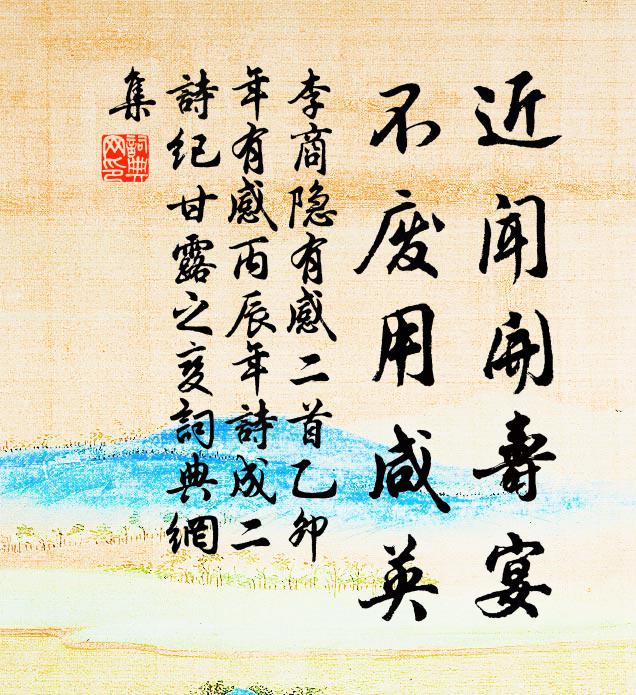 近闻開壽宴
不废用咸英
李商隐有感二首乙卯
年有感丙辰年詩成二
詩纪甘露之变詞典網
集
詞典
网印